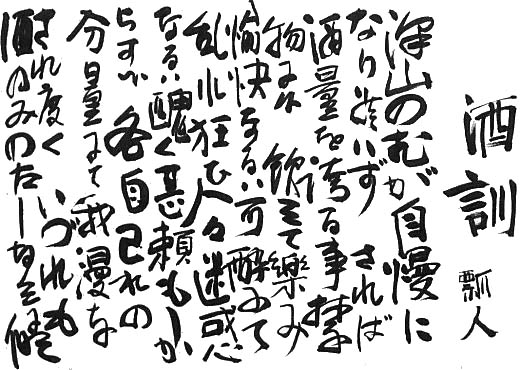 酒訓
瓢人
沢山のむが自慢に
なり されば
酒量を誇る事禁
物 飲みて楽み
愉快なる可 酔ふて
乱れ狂ひ人々迷惑
なる 醜く甚頼もしか
らず 各自己れの
分量にて 我漫な
され度く いづれも
酒のみのたしなみ候